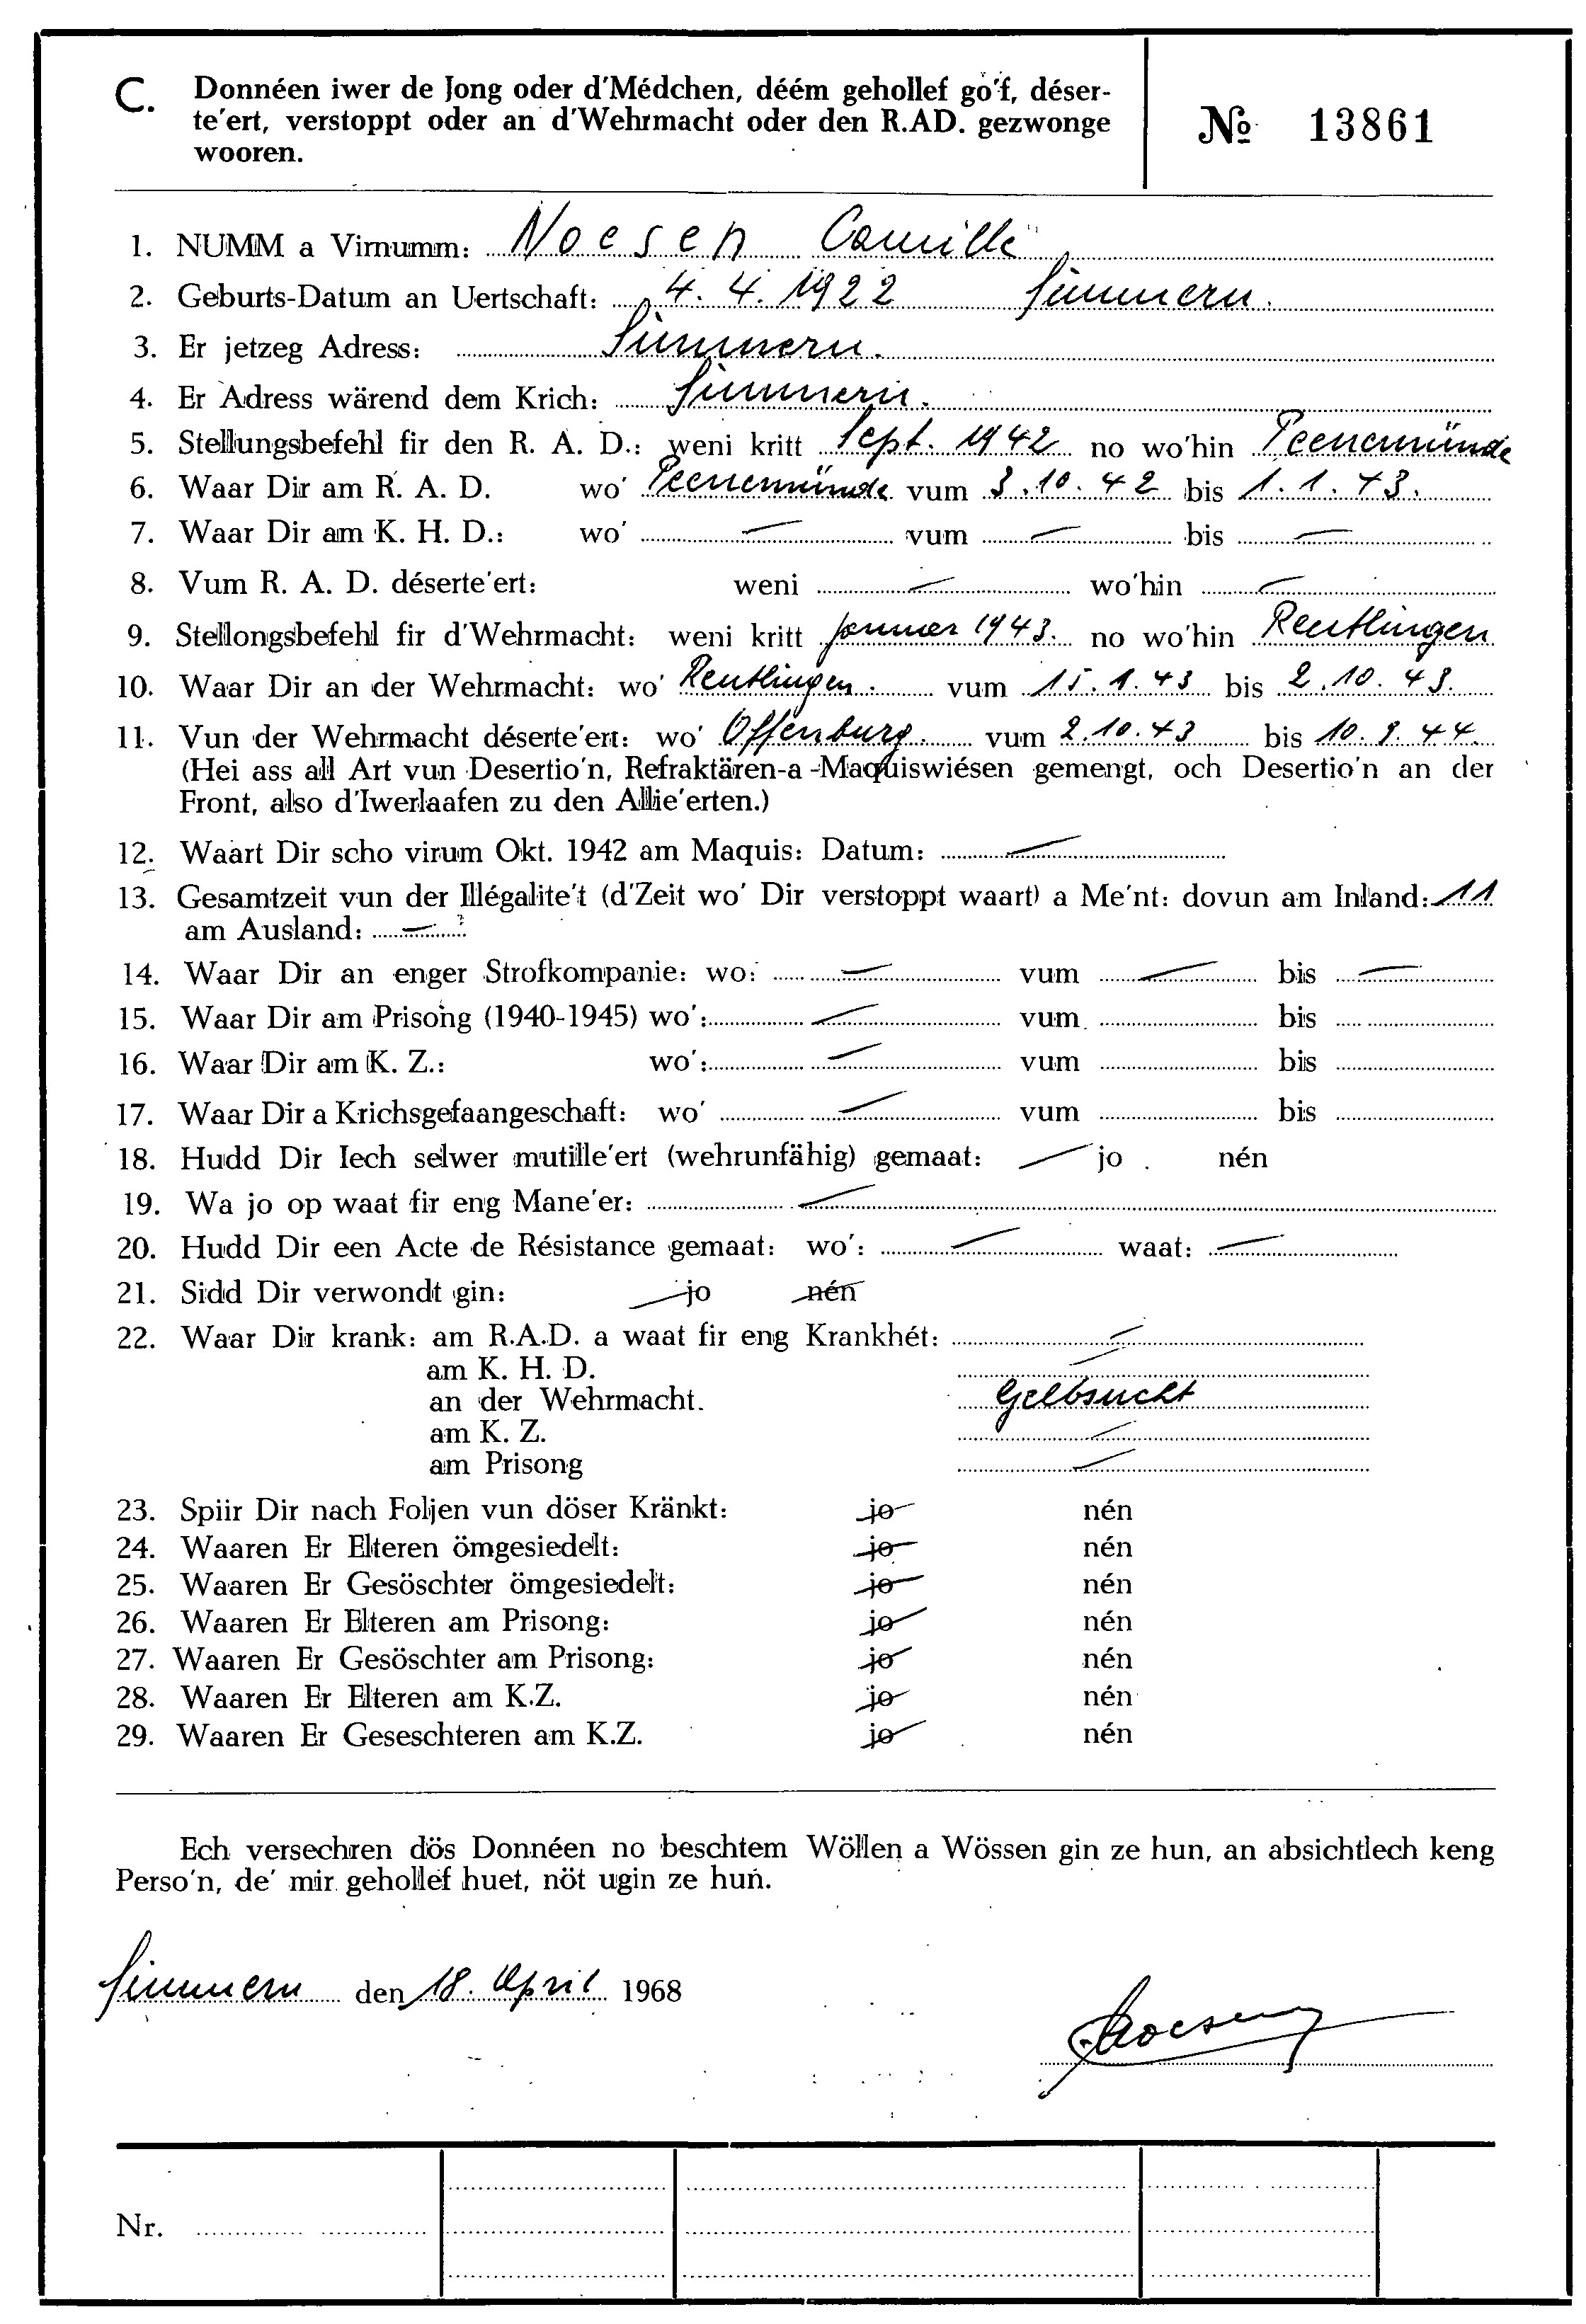 C. Donnéen iwer de Jong oder d'Médchen, déém gehollef go'f, déser-
te'ert, verstoppt oder an d'Wehrmacht oder den R.AD. gezwonge
wooren.
№ 13861
1. NUMM a Virnumm: Noesen Camille
2. Geburts-Datum an Uertschaft: 4. 4. 1922 Simmern.
3. Er jetzeg Adress: Simmern.
4. Er Adress wärend dem Krich: Simmern.
5. Stellungsbefehl fir den R. A. D.: weni kritt Sept. 1942 no wo'hin Peenemünde
6. Waar Dir am R. A. D. wo' Peenemünde vum 3.10.42 bis 1.1.43.
7. Waar Dir am K. H. D.: wo' — vum — bis —
8. Vum R. A. D. déserte'ert: weni — wo'hin —
9. Stellongsbefehl fir d'Wehrmacht: weni kritt Januar 1943. no wo'hin Reutlingen
10. Waar Dir an der Wehrmacht: wo' Reutlingen. vum 15.1.43 bis 2.10.43.
11. Vun der Wehrmacht déserte'ert: wo' Offenburg. vum 2.10.43 bis 10.9.44.
(Hei ass all Art vun Desertio'n, Refraktären-a-Maquiswiésen gemengt, och Desertio'n an der
Front, also d'Iwerlaafen zu den Allie'erten.)
12. Waart Dir scho virum Okt. 1942 am Maquis: Datum: —
13. Gesamtzeit vun der Illégalite't (d'Zeit wo' Dir verstoppt waart) a Me'nt: dovun am Inland: 11
am Ausland: —
14. Waar Dir an enger Strofkompanie: wo: — vum — bis —
15. Waar Dir am Prisong (1940-1945) wo': — vum bis
16. Waar Dir am K. Z.: wo': — vum bis
17. Waar Dir a Krichsgefaangeschaft: wo' — vum bis
18. Hudd Dir Iech selwer mutille'ert (wehrunfähig) gemaat: — jo nén
19. Wa jo op waat fir eng Mane'er: —
20. Hudd Dir een Acte de Résistance gemaat: wo': — waat: —
21. Sidd Dir verwondt gin: jo nén
22. Waar Dir krank: am R.A.D. a waat fir eng Krankhét: —
am K. H. D. —
an der Wehrmacht. Gelbsucht
am K. Z. —
am Prisong —
23. Spiir Dir nach Foljen vun döser Kränkt: jo nén
24. Waaren Er Elteren ömgesiedelt: jo nén
25. Waaren Er Gesöschter ömgesiedelt: jo nén
26. Waaren Er Elteren am Prisong: jo nén
27. Waaren Er Gesöschter am Prisong: jo nén
28. Waaren Er Elteren am K.Z. jo nén
29. Waaren Er Geseschteren am K.Z. jo nén
Ech versechren dös Donnéen no beschtem Wöllen a Wössen gin ze hun, an absichtlech keng
Perso'n, de' mir gehollef huet, nöt ugin ze hun.
Simmern den 18. April 1968
Noesen
Nr.